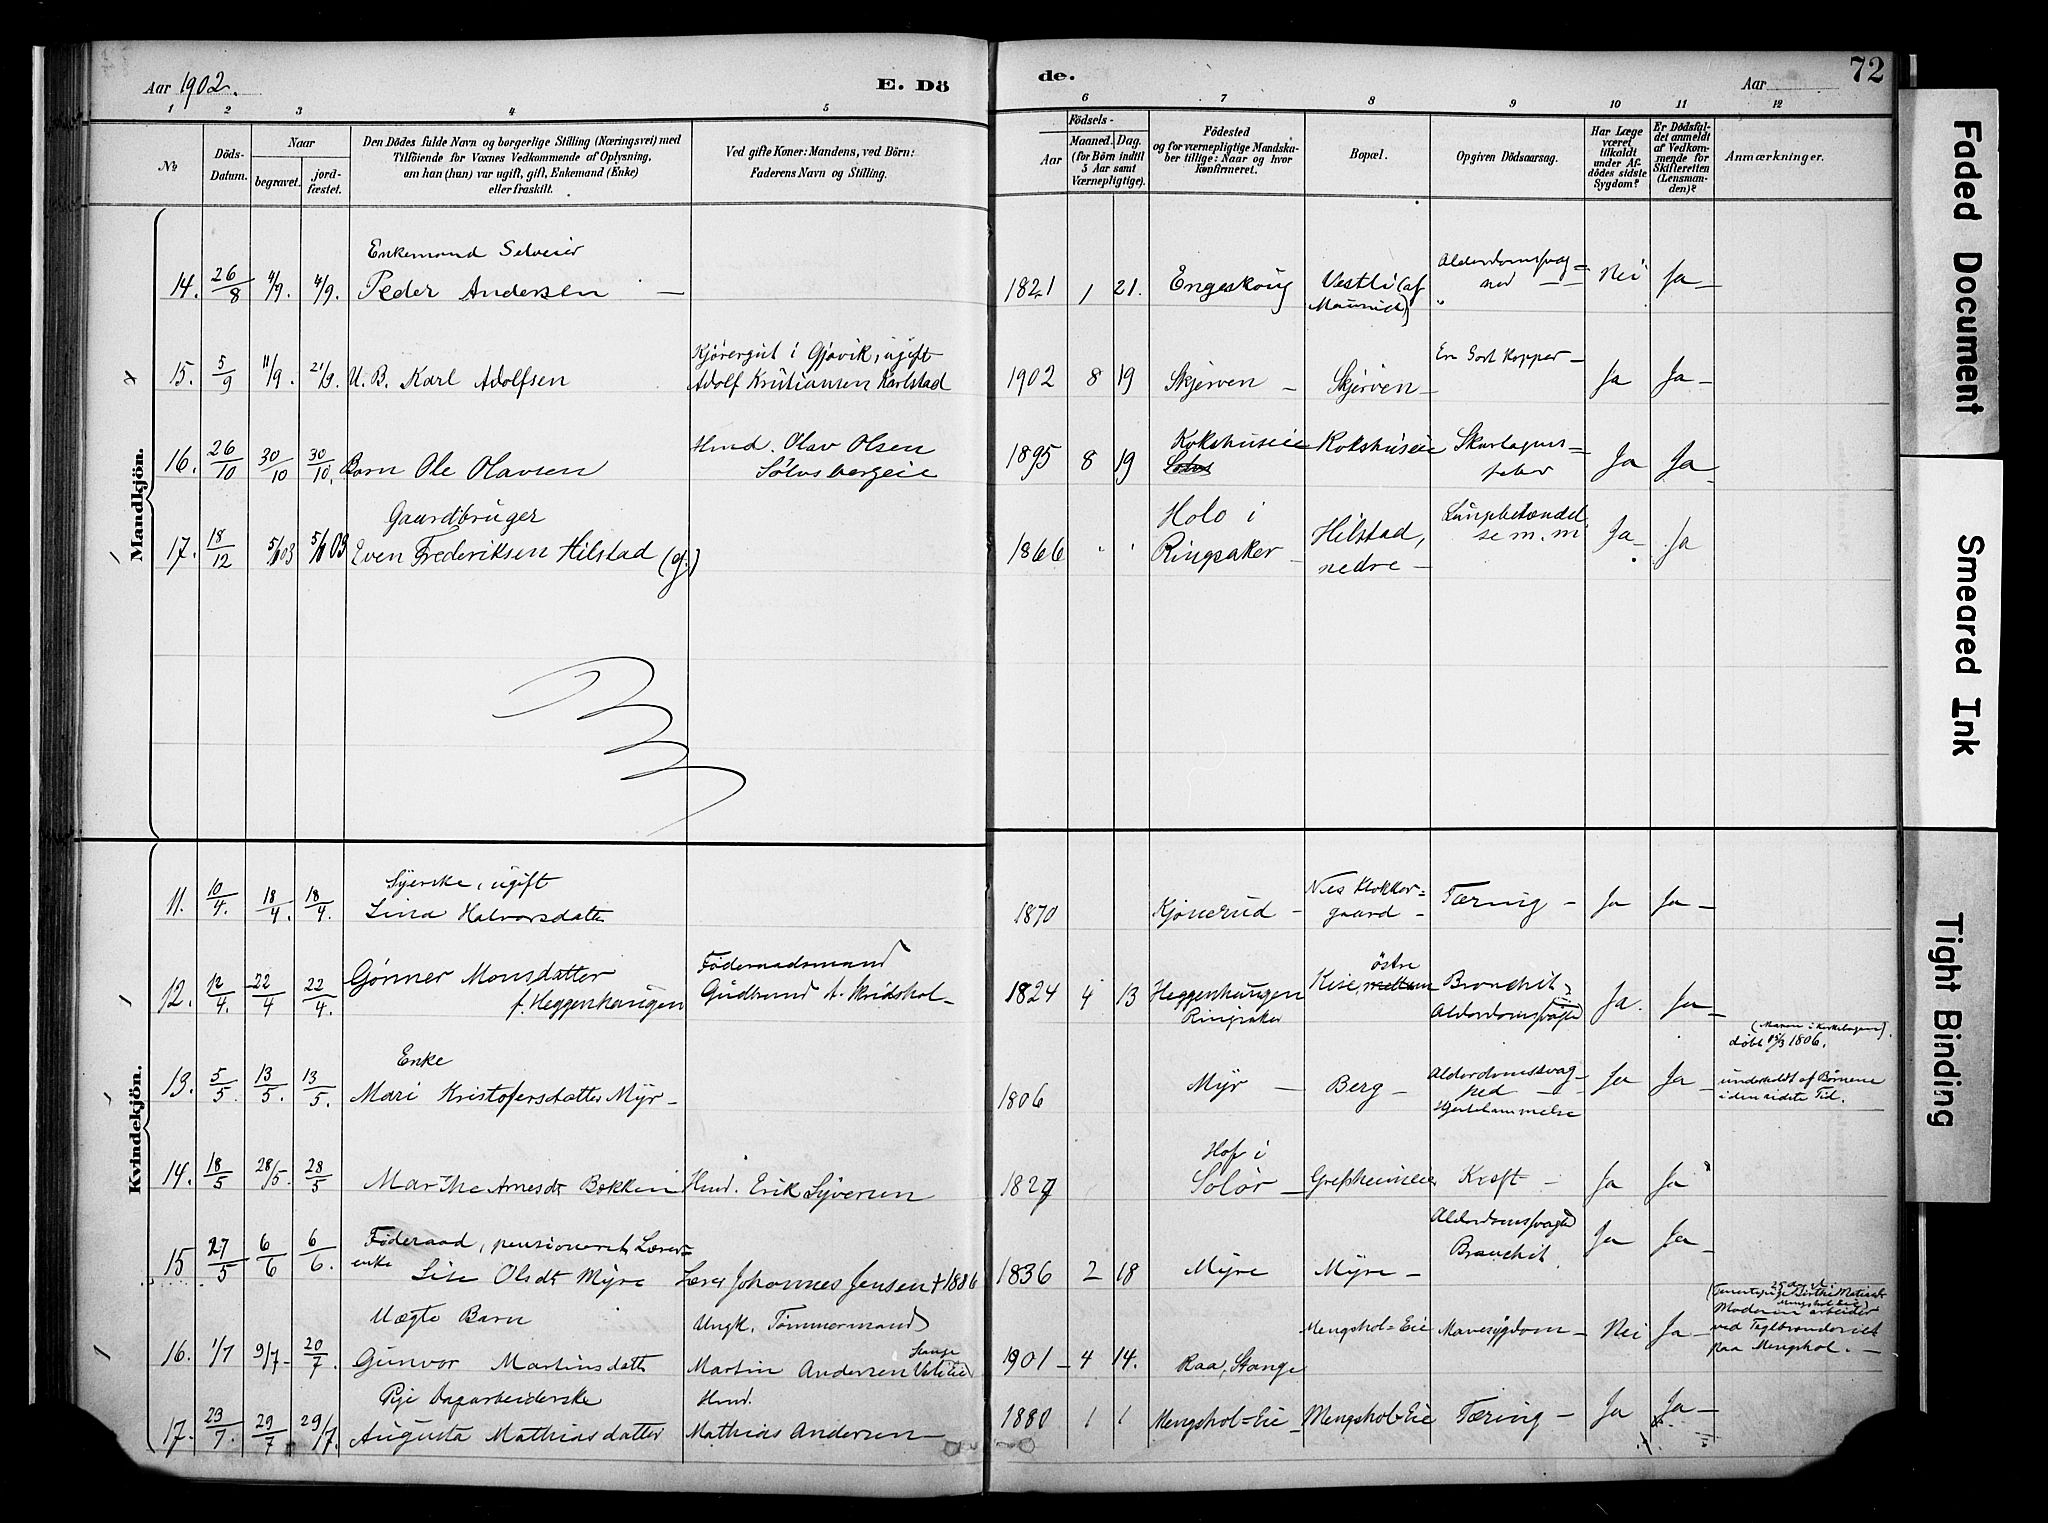 Aar 1902.
E. Dö
de.
Aar
72
1 2 3 4 5 6 7 8 9 10 11 12
No
Döds-Datum.
Naar
begravet.
jord-fæstet.
Den Dödes fulde Navn og borgerlige Stilling (Næringsvei) med
Tilföiende for Voxnes Vedkommende af Oplysning,
om han (hun) var ugift, gift, Enkemand (Enke)
eller fraskilt.
Ved gifte Koner: Mandens, ved Börn:
Faderens Navn og Stilling.
Födsels-
Aar
Maaned. Dag.
(for Börn indtil
5 Aar samt
Værnepligtige).
Födested
og for værnepligtige Mandska-
ber tillige: Naar og hvor
konfirmeret.
Bopæl.
Opgiven Dödsaarsag.
Har Læge
været
tilkaldt
under Af-
dödes sidste
Sygdom?
Er Dödsfal-
det anmeldt
af Vedkom-
mende for
Skifteretten
(Lensman-
den)?
Anmærkninger.
Mandkjön.
Enkemand Selveier
14. 26/8 4/9. 4/9. Peder Andersen — 1821 1 21. Engeskoug Vestli (af Alderdomssvag= Nei Ja—
15. 5/9 11/9. 21/9. U. B. Karl Adolfsen
Kjörergut i Gjøvik, ugift
Adolf Kristiansen Karlstad
1902 8 19 Skjerven — Skjerven — Ja Ja —
16. 26/10 30/10 30/10. Barn Ole Olavsen
Hmd. Olav Olsen
Sölvsbergeie
1895 8 19 Kokshuseie Kokshuseie Skarlagens-
feber Ja Ja —
Gaardbruger
17. 18/12 5/1 03 5/1 03 Even Frederiksen Hilstad (g.)
1866 Holo i
Ringsaker — Hilstad,
nedre — Lungebetændel
se m. m Ja — Ja
Kvindekjön.
Syerske, ugift
11. 10/4. 18/4. 18/4. Lina Halvorsdatter
1870 Kjønerud — Nes Klokker=
gaard — Tæring — Ja Ja —
12. 12/4. 22/4 22/4. Gønner Monsdatter
f. Heggenhaugen
Föderaadsmand
Gudbrand A. Skridshol —
1824 4 13 Heggenhaugen
Ringsaker
Kise, østre Bronchit
Ja. Ja —
Enke
13. 5/5. 13/5. 13/5. Mari Kristofersdatter Myr —
1806 Myr — Berg — Alderdomssvag-
hed —
Hjertelammelse
Ja Ja —
døbt 13/3 1806.
underholdt af Børnene
i den sidste Tid.
14. 18/5 28/5. 28/5 Marthe Arnesdt Bakken Hmd. Erik Syversen
1827 Hof i
Solør — Grefsheimeie Kræft — Ja Ja
Föderaad, pensioneret Lærer=
enke
15 27/5 6/6 6/6. Lise Olsdt Myre Lærer Johannes Jensen † 1886
1836 2 18 Myre Myre — Bronchit. Ja Ja —
Uægte Barn
16. 1/7 9/7 — 20/7. Gunvor Martinsdatter
Ungk. Tømmermand
Martin Andersen
Stange
1901 — 4 14. Raa, Stange Mengshol=Eie Mavesygdom — Nei Ja —
Moderen arbeider
ved Teglbrænderiet
paa Mengshol. —
Pige Dagarbeiderske
17. 23/7. 29/7 29/7. Augusta Mathiasdatter
Hmd.
Mathias Andersen —
1880 1 1 Mengshol=Eie — Mengshol=Eie Tæring — Ja Ja —
Faded Document
Smeared Ink
Tight Binding